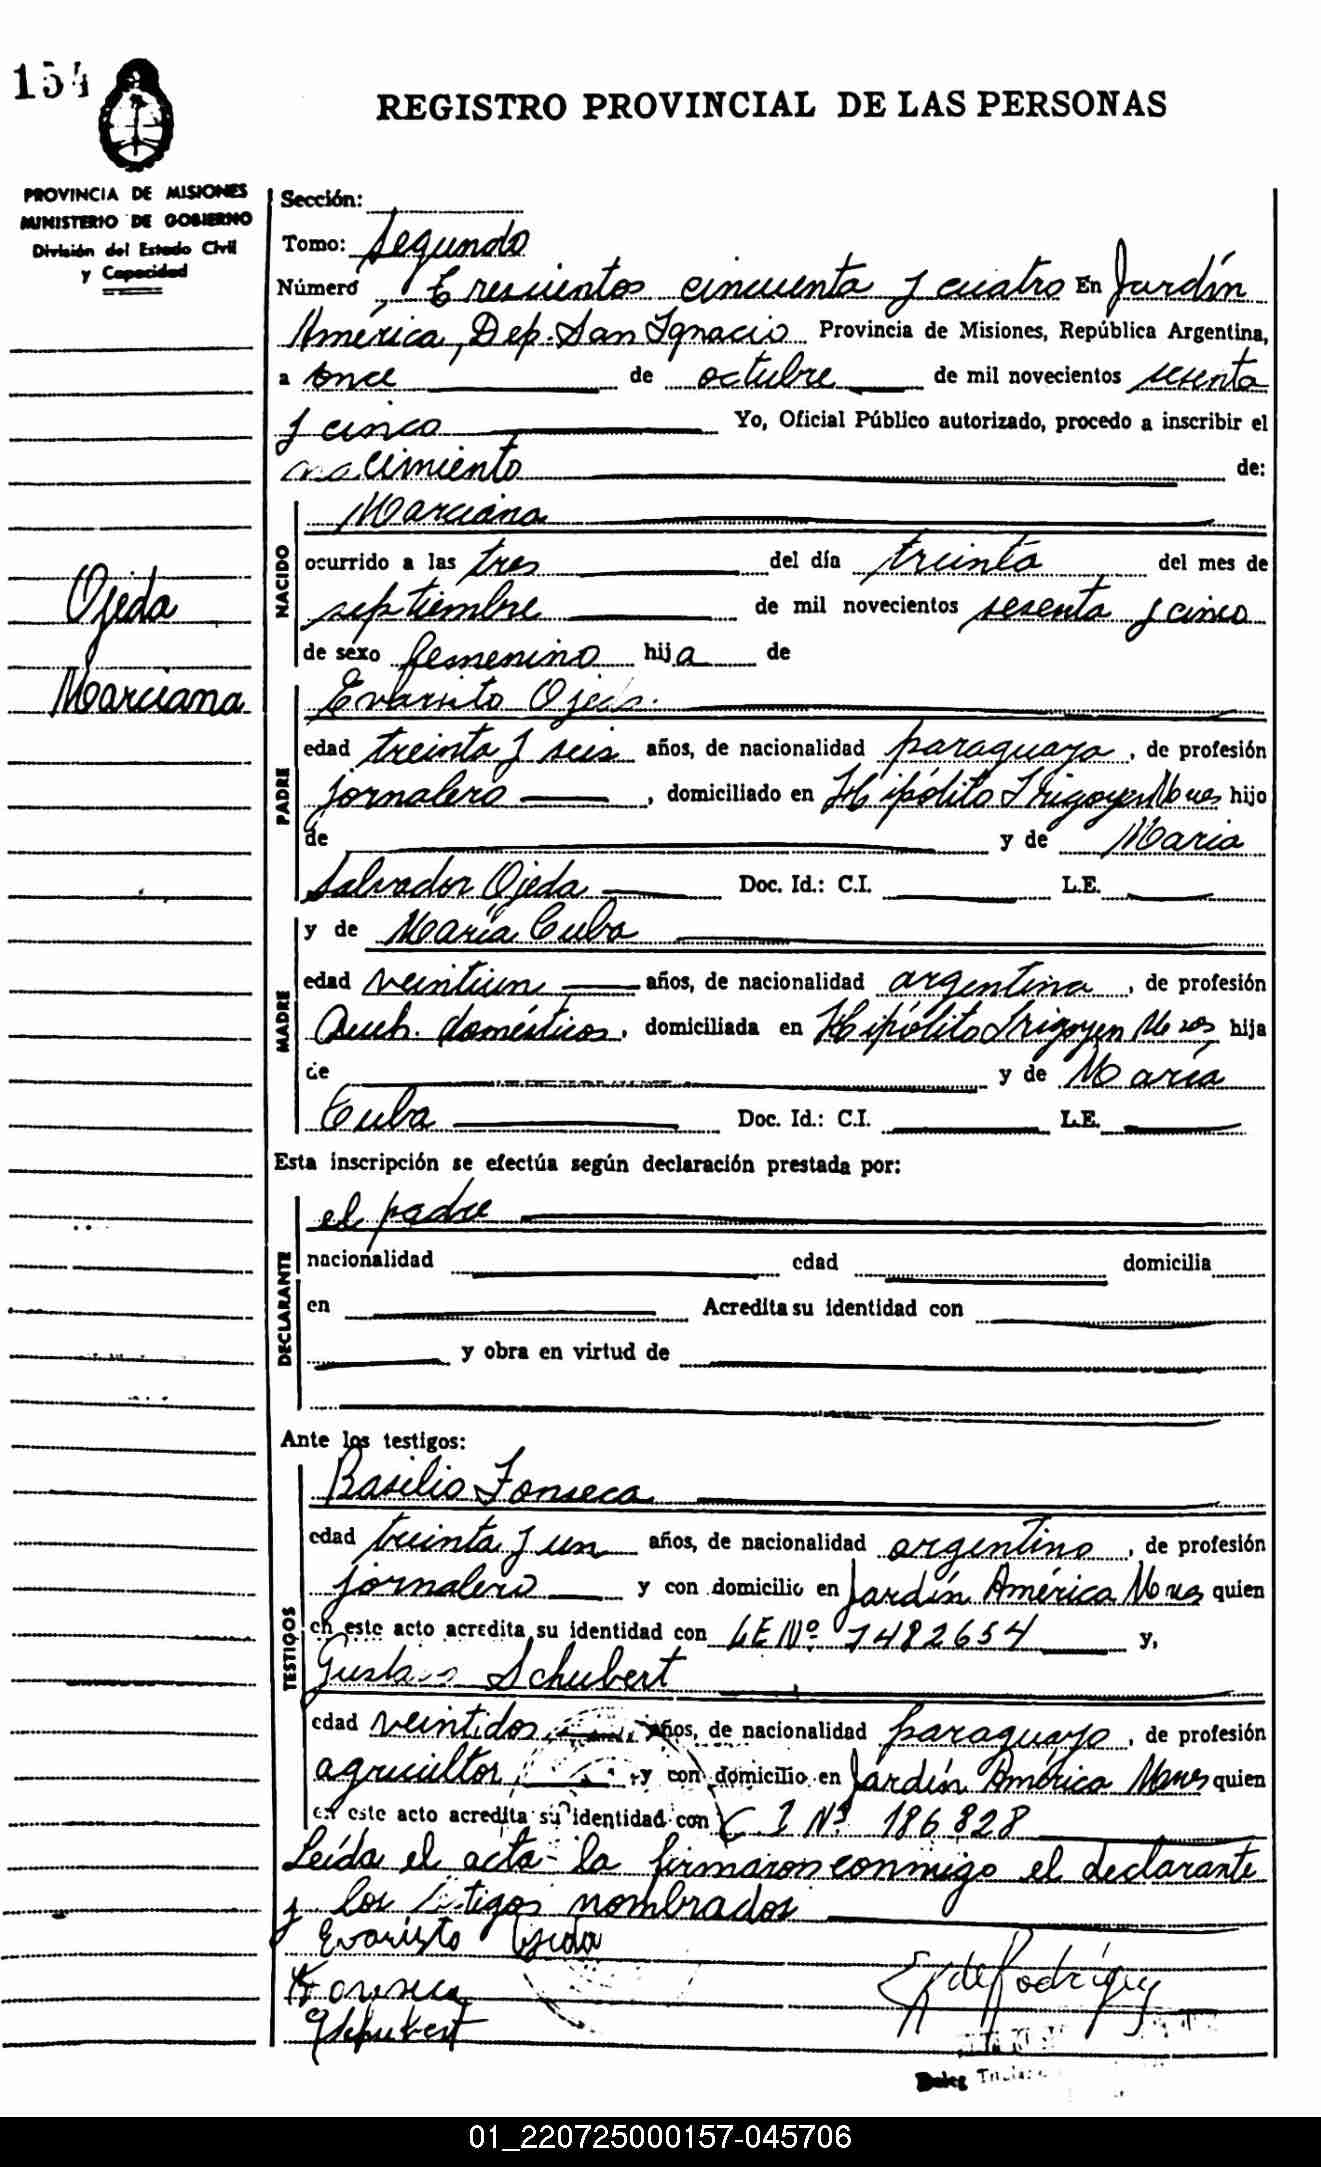 154
REGISTRO PROVINCIAL DE LAS PERSONAS
PROVINCIA DE MISIONES
MINISTERIO DE GOBIERNO
División del Estado Civil
y Capacidad
Ojeda
Marciana
Sección:
Tomo: Segundo
Número Trescientos cincuenta y cuatro En Jardín
América, Dep. San Ignacio Provincia de Misiones, República Argentina,
a once de octubre de mil novecientos sesenta
y cinco Yo, Oficial Público autorizado, procedo a inscribir el
nacimiento de:
Marciana
NACIDO
ocurrido a las tres del día treinta del mes de
septiembre de mil novecientos sesenta y cinco
de sexo femenino hija de
Evaristo Ojeda.
PADRE
edad treinta y seis años, de nacionalidad paraguaya, de profesión
jornalero, domiciliado en Hipólito Irigoyen Mnes hijo
de y de María
Salvadora Ojeda Doc. Id.: C.I. L.E.
MADRE
y de María Cuba
edad veintiun años, de nacionalidad argentina, de profesión
Queh. domésticos, domiciliada en Hipólito Irigoyen Mnes hija
de y de María
Cuba Doc. Id.: C.I. L.E.
Esta inscripción se efectúa según declaración prestada por:
DECLARANTE
el padre
nacionalidad edad domicilia
en Acredita su identidad con
y obra en virtud de
Ante los testigos:
TESTIGOS
Basilio Fonseca
edad treinta y un años, de nacionalidad argentino, de profesión
jornalero y con domicilio en Jardín América Mnes quien
en este acto acredita su identidad con LE Nº 7482654 y,
Gustavo Schubert
edad veintidos años, de nacionalidad paraguayo, de profesión
agricultor y con domicilio en Jardín América Mnes quien
en este acto acredita su identidad con C I Nº 186828
Leída el acta la firmaron conmigo el declarante
y los testigos nombrados
Evaristo Ojeda
Fonseca
GSchubert
de Rodríguez
Deleg Titular
01_220725000157-045706